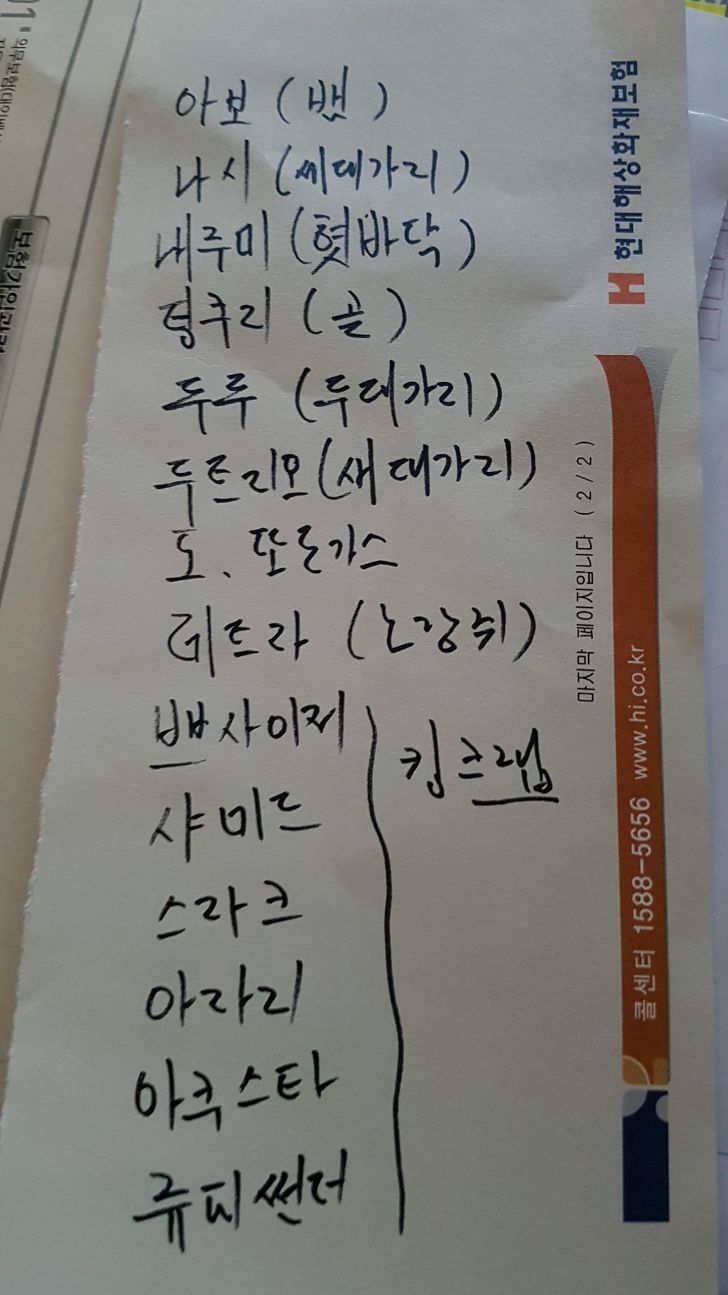 아보 (뱀)
나시 (세대가리)
내루미 (혓바닥)
텅쿠리 (골)
두두 (두대가리)
두트리오 (새대가리)
도、또른가스
레트라 (노랑쥐)
뿌사이저
킹크랩
샤미드
스라크
아라리
아쿠스타
쥬피썬더
현대해상화재보험
마지막 페이지입니다 ( 2 / 2 )
콜센터 1588-5656 www.hi.co.kr